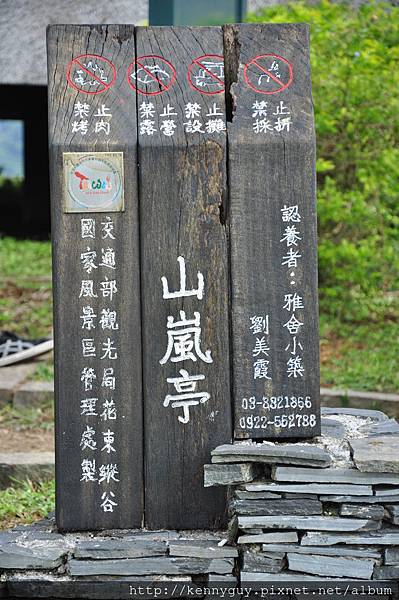 禁止
烤肉
禁止
露營
禁止
設攤
禁止
採折
認養者：雅舍小築
劉美霞
0922-552788
山嵐亭
交通部觀光局花東縱谷
國家風景區管理處製
http://kennygyy.pixnet.net/album